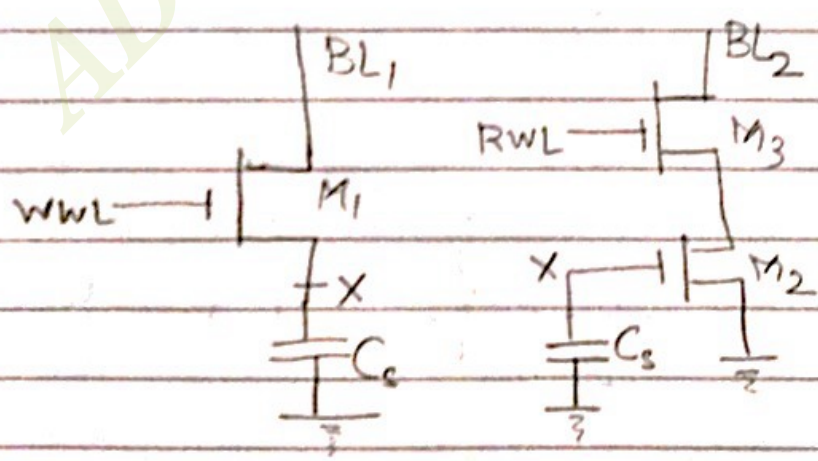 AD
BL₁
BL₂
RWL
M₃
WWL
M₁
X
M₂
X
Cₛ
Cₛ